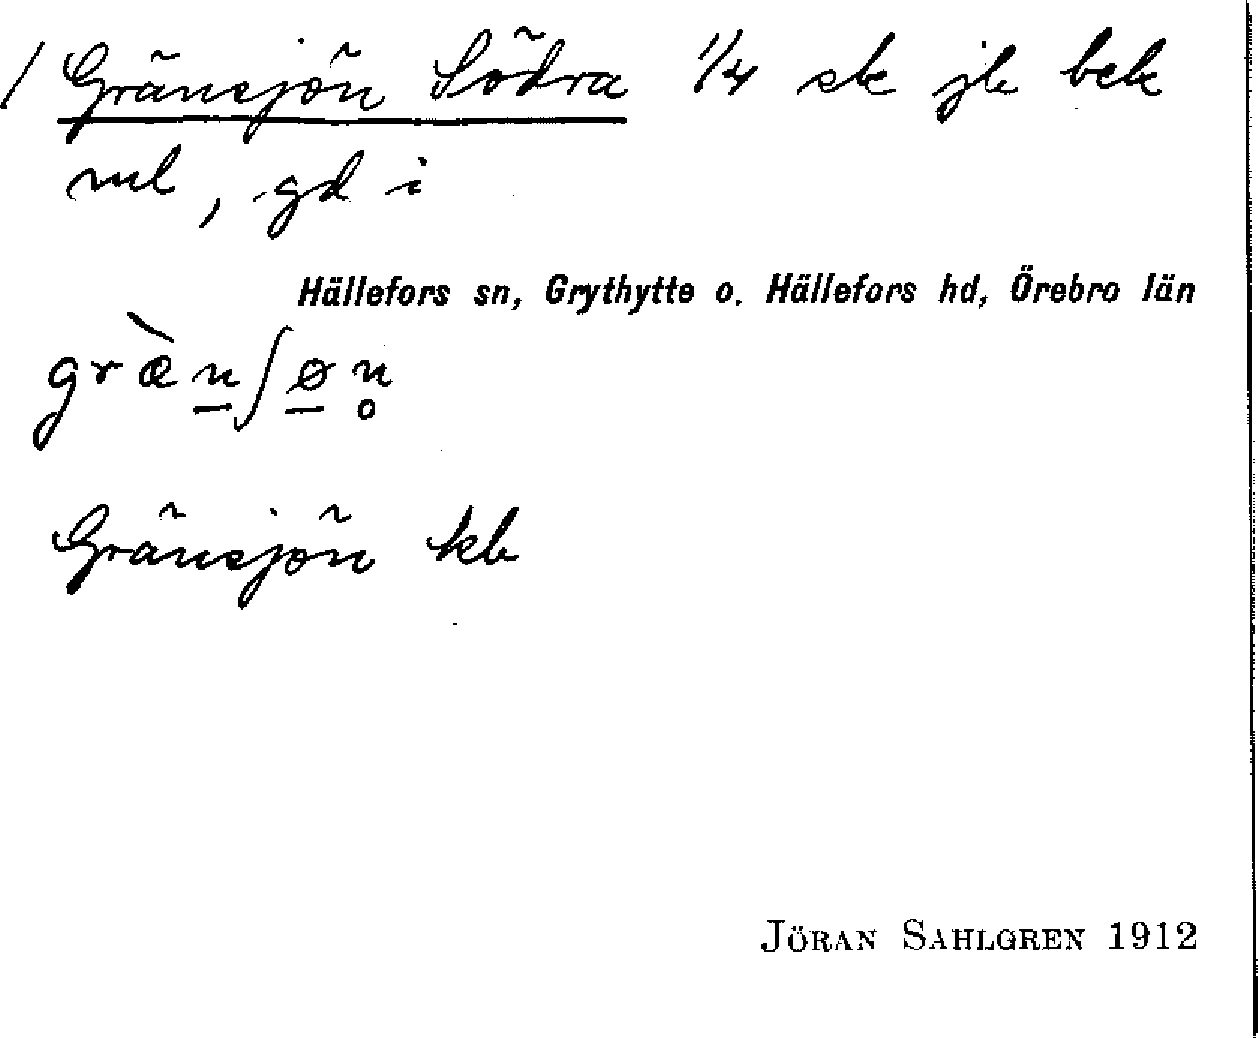 / Gränsjön Södra 1/4 sk jb bek
ml, gd i
Hällefors sn, Grythytte o. Hällefors hd, Örebro län
græ̀n̲ʃø̲n̥
Gränsjön kb
JÖRAN SAHLGREN 1912